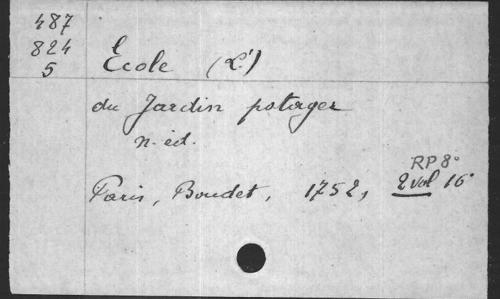 487
824
5
École (L')
du Jardin potager
n. éd.
RP 8°
Paris, Boudet, 1752, 2 vol 16°